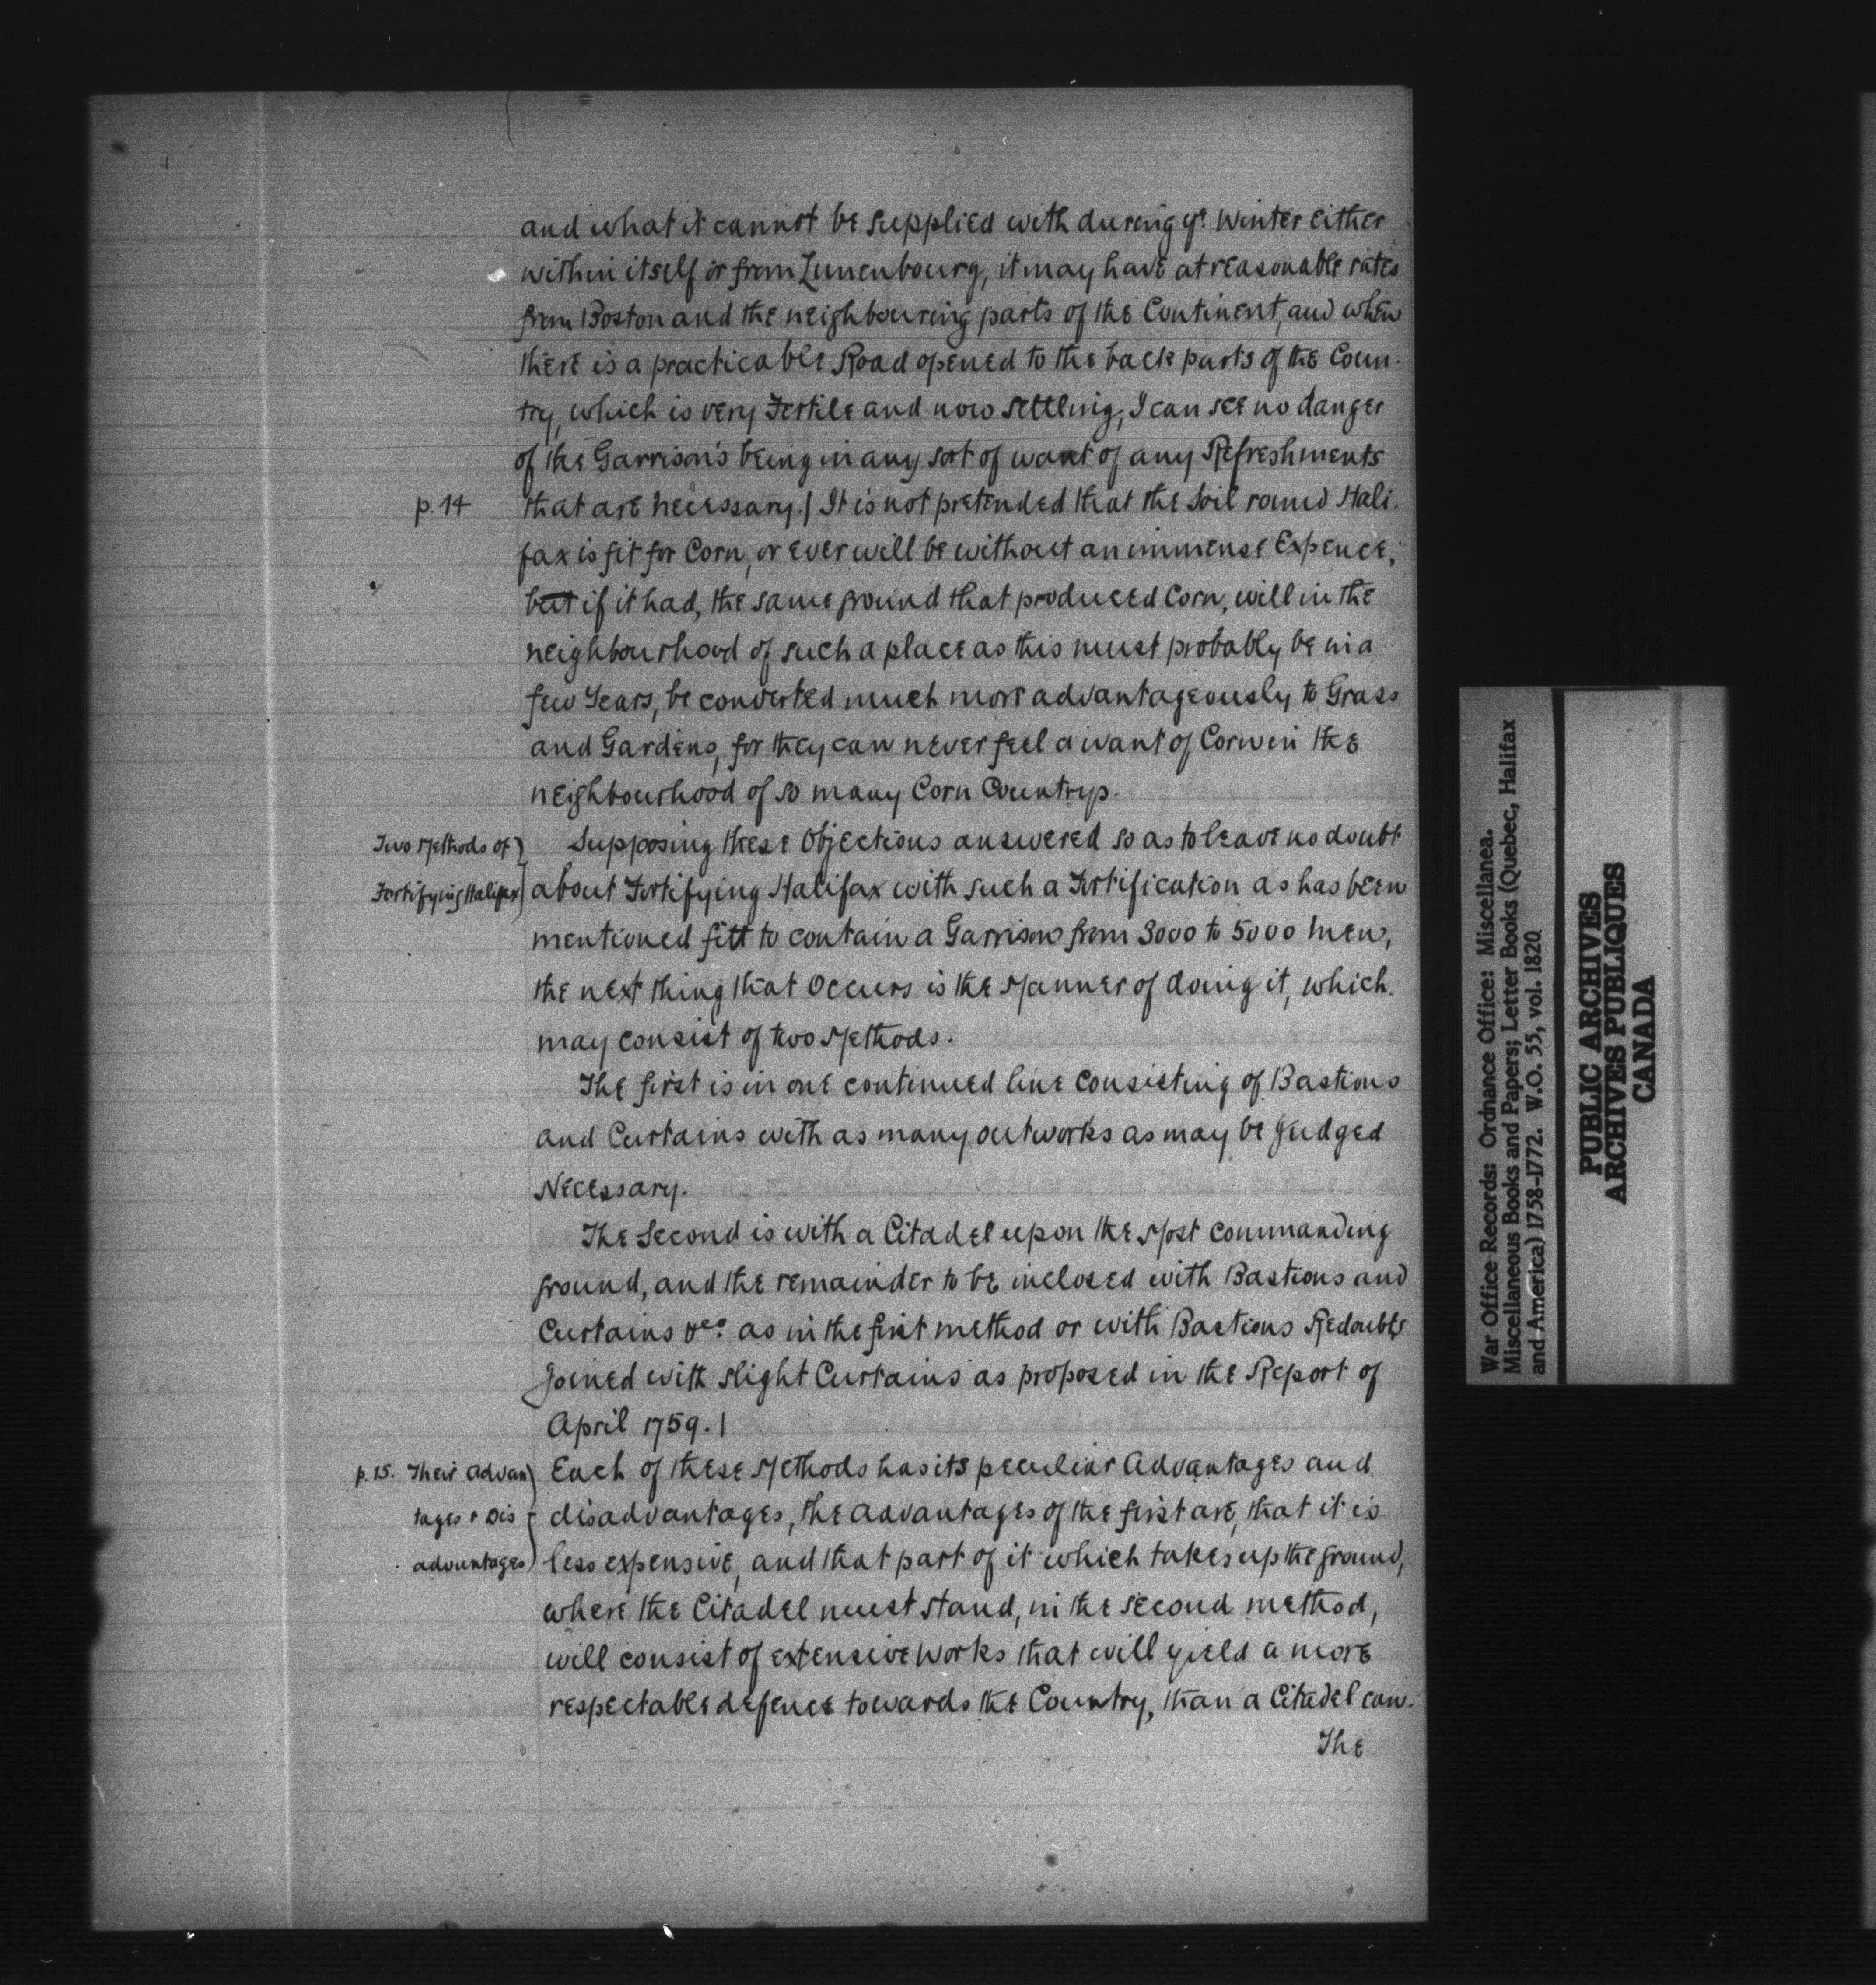 and what it cannot be supplied with during ye. Winter either
within itself or from Lunenbourg, it may have at reasonable rates
from Boston and the neighbouring parts of the Continent, and when
there is a practicable Road opened to the back parts of the Coun-
try, which is very Fertile and now settling, I can see no danger
of the Garrison's being in any sort of want of any Refreshments
p. 14 that are necessary.| It is not pretended that the Soil round Hali-
fax is fit for Corn, or ever will be without an immense Expence,
but if it had, the same ground that produced Corn, will in the
neighbourhood of such a place as this must probably be in a
few Years, be converted much more advantageously to Grass
and Gardens, for they can never feel a want of Corn in the
neighbourhood of so many Corn Countrys.
Two Methods of } Supposing these Objections answered so as to leave no doubt
Fortifying Halifax } about Fortifying Halifax with such a Fortification as has been
mentioned fitt to contain a Garrison from 3000 to 5000 Men,
the next thing that Occurs is the Manner of doing it, which
may consist of two Methods.
The first is in one continued line consisting of Bastions
and Curtains with as many outworks as may be Judged
Necessary.
The Second is with a Citadel upon the Most commanding
ground, and the remainder to be inclosed with Bastions and
Curtains &ca. as in the first method or with Bastions Redoubts
Joined with slight Curtains as proposed in the Report of
April 1759.|
p. 15. Their Advan } Each of these Methods has its peculiar Advantages and
tages & Dis { disadvantages, the advantages of the first are, that it is
advantages } less expensive, and that part of it which takes up the ground,
where the Citadel must stand, in the second method,
will consist of extensive Works that will yield a more
respectable defence towards the Country, than a Citadel can.
The
War Office Records: Ordnance Office: Miscellanea.
Miscellaneous Books and Papers; Letter Books (Quebec, Halifax
and America) 1758-1772. W.O. 55, vol. 1820
PUBLIC ARCHIVES
ARCHIVES PUBLIQUES
CANADA